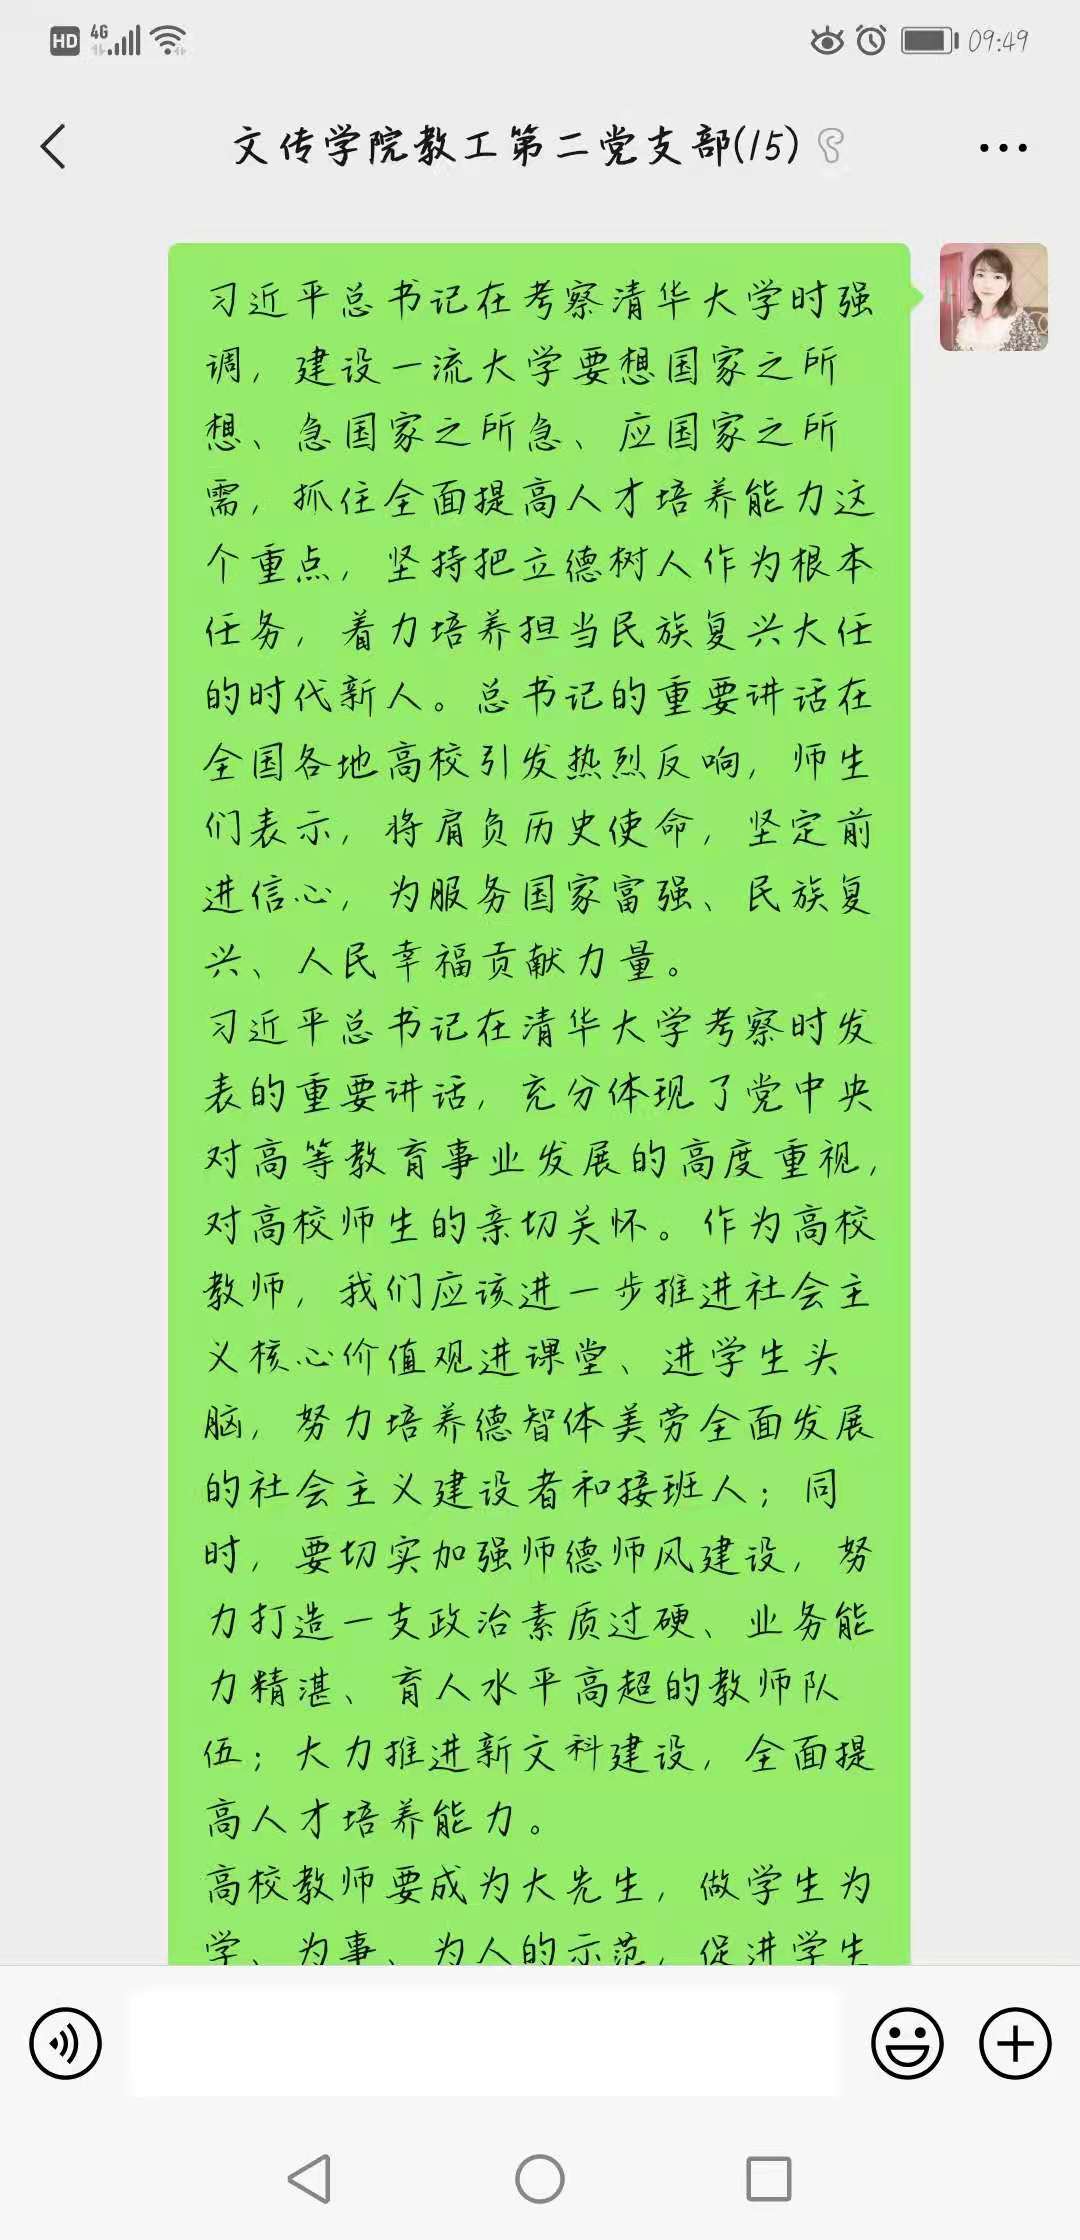 HD 4G 09:49
文传学院教工第二党支部(15)
习近平总书记在考察清华大学时强
调，建设一流大学要想国家之所
想、急国家之所急、应国家之所
需，抓住全面提高人才培养能力这
个重点，坚持把立德树人作为根本
任务，着力培养担当民族复兴大任
的时代新人。总书记的重要讲话在
全国各地高校引发热烈反响，师生
们表示，将肩负历史使命，坚定前
进信心，为服务国家富强、民族复
兴、人民幸福贡献力量。
习近平总书记在清华大学考察时发
表的重要讲话，充分体现了党中央
对高等教育事业发展的高度重视，
对高校师生的亲切关怀。作为高校
教师，我们应该进一步推进社会主
义核心价值观进课堂、进学生头
脑，努力培养德智体美劳全面发展
的社会主义建设者和接班人；同
时，要切实加强师德师风建设，努
力打造一支政治素质过硬、业务能
力精湛、育人水平高超的教师队
伍；大力推进新文科建设，全面提
高人才培养能力。
高校教师要成为大先生，做学生为
学、为事、为人的示范，促进学生